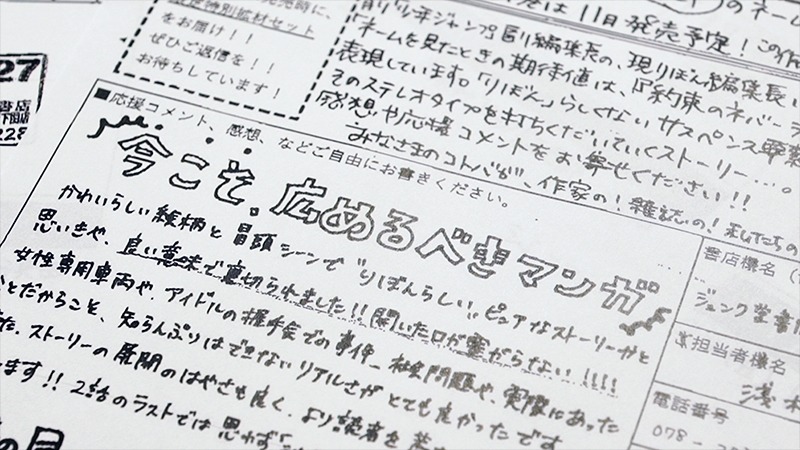 のネーム
は11月発売予定！この作
月りぼん
少年ジャンプ副編集長の、現りぼん編集長
「ネームを見たときの期待値は、『約束のネバー
表現しています。「りぼん」らしくないサスペンス
そのステレオタイプを打ちくだいていくストーリー…。
感想や応援コメントをお寄せください！！
みなさまのコトバが、作家の！雑誌の！私たちの
発売時に、
特別拡材セット
をお届け！！
ぜひご返信を！！
お待ちしています！
27
書店
下田店
228
■応援コメント、感想、などご自由にお書きください。
今こそ、広めるべきマンガ
かわいらしい絵柄と冒頭シーンで"りぼんらしい"ピュアなストーリーかと
思いきや、良い意味で裏切られました!!開いた口が塞がらない!!!!
女性専用車両や、アイドルの握手会での事件…社会問題や、実際にあった
ことだからこそ、知らんぷりはできないリアルさがとても良かったです
ストーリーの展開のはやさも良く、より読者を
ます!!2話のラストでは思わず「
書店様名
ジュンク堂書
ご担当者様名
浅木
電話番号
078-